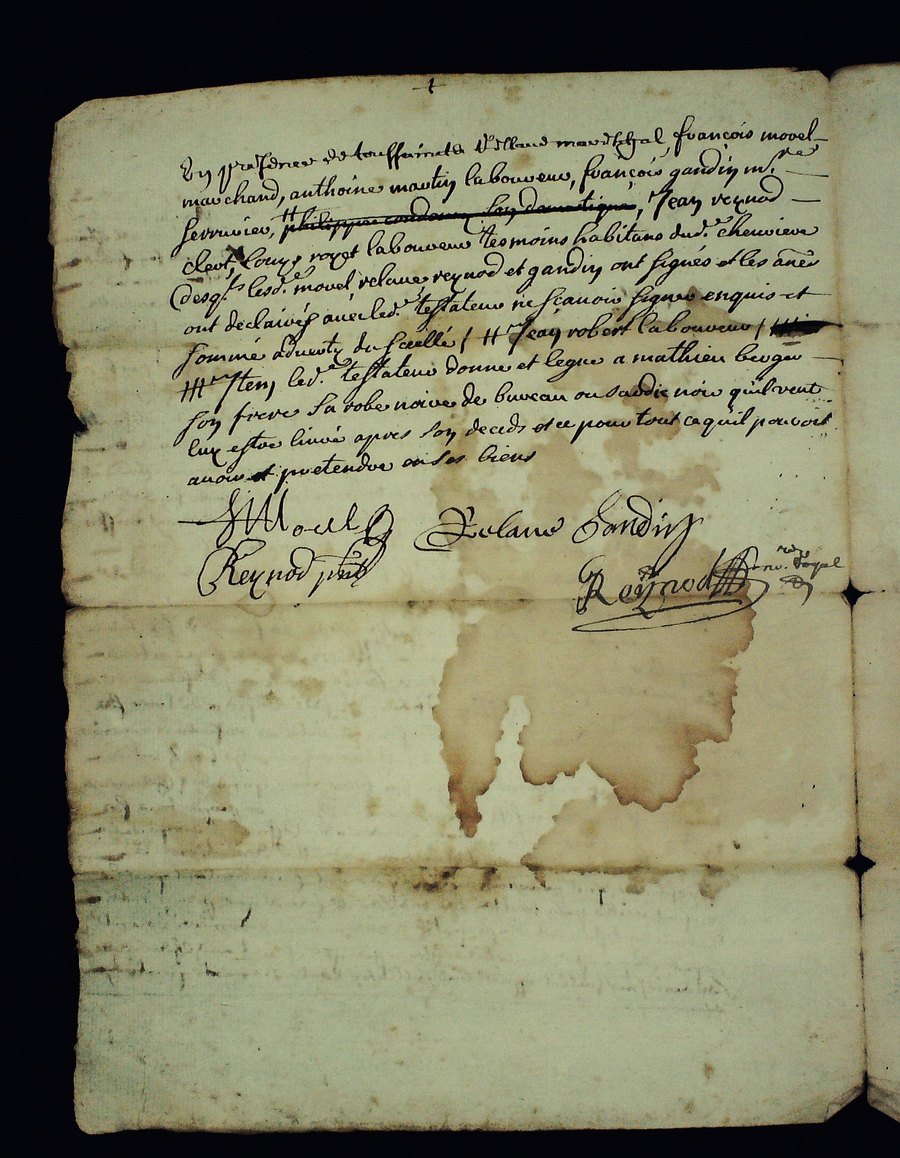 En presence de toussaincts Velaue mareschal, françois morel
marchand, anthoine martin laboureur, françois gandin mre
serrurier, # philippe condamin son domestique, Jean reynod
clerc, Louys royet laboureur tesmoins habitans dud. chevriere
desqls lesd. morel velaue reynod et gandin ont signés et les aûes
ont declairés avec led. testateur ne scavoir signer enquis et
sommé aduerty du scellé / # Jean robert laboureur /
Item led. testateur donne et legue a mathieu berger
son frere sa robe noire de bureau ou sardie noir quil veut
luy estre livré apres son deceds et ce pour tout ce quil pourroit
avoir et pretendre en ses biens
Morel Velaue Gandin
Reynod pnt
Reynod nore Royal